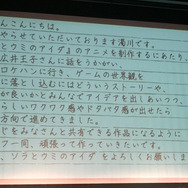 んこんにちは。
やらせていただいております湯川です。
とウミのアイダ』のアニメを制作するにあたり、
広井王子さんに話をうかがい、
ロケハンに行き、ゲームの世界観を
に落とし込むにはどういうストーリーや、
が良いかとみんなでアイデアを出しあいつつ、
らしいワクワク感やドタバタ感が出せたら
方向で進めてきました。
じをみなさんと共有できる作品になるように
フ一同、頑張って作っていきたいです。
、ソラとウミのアイダ をよろしくお願いしま